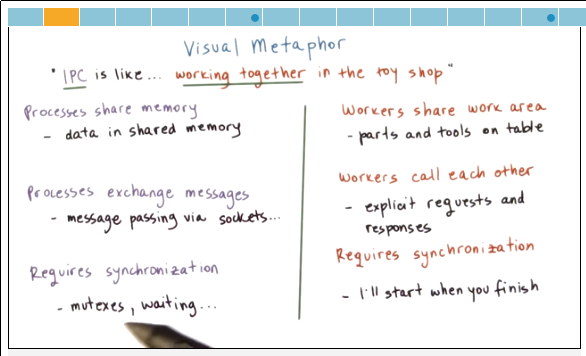 Visual Metaphor
"IPC is like... working together in the toy shop"
Processes share memory
- data in shared memory
Processes exchange messages
- message passing via sockets...
Requires synchronization
- mutexes, waiting...
Workers share work area
- parts and tools on table
Workers call each other
- explicit requests and
responses
Requires synchronization
- I'll start when you finish